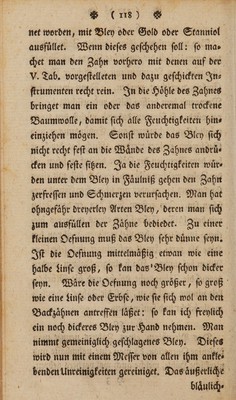 ( 118 )
net worden, mit Bley oder Gold oder Stanniol
ausfüllet. Wenn dieses geschehen soll: so ma-
chet man den Zahn vorhero mit denen auf der
V. Tab. vorgestelleten und dazu geschickten In-
strumenten recht rein. In die Höhle des Zahnes
bringet man ein oder das anderemal trockene
Baumwolle, damit sich alle Feuchtigkeiten hin-
einziehen mögen. Sonst würde das Bley sich
nicht recht fest an die Wände des Zahnes andrü-
cken und feste sitzen. Ja die Feuchtigkeiten wür-
den unter dem Bley in Fäulniß gehen den Zahn
zerfressen und Schmerzen verursachen. Man hat
ohngefähr dreyerley Arten Bley, deren man sich
zum ausfüllen der Zähne bedienet. Zu einer
kleinen Oefnung muß das Bley sehr dünne seyn.
Ist die Oefnung mittelmäßig etwan wie eine
halbe Linse groß, so kan das Bley schon dicker
seyn. Wäre die Oefnung noch größer, so groß
wie eine Linse oder Erbse, wie sie sich wol an den
Backzähnen antreffen läßet: so kan ich freylich
ein noch dickeres Bley zur Hand nehmen. Man
nimmt gemeiniglich geschlagenes Bley. Dieses
wird nun mit einem Messer von allen ihm ankle-
benden Unreinigkeiten gereiniget. Das äußerliche
bläulich-